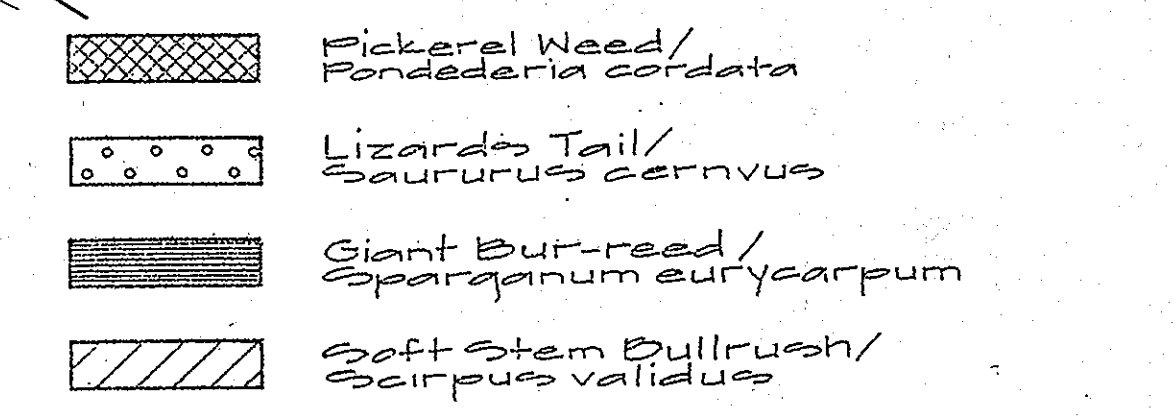 Pickerel Weed/
Pondederia cordata
Lizards Tail/
Saururus cernvus
Giant Bur-reed/
Sparganum eurycarpum
Soft Stem Bullrush/
Scirpus validus